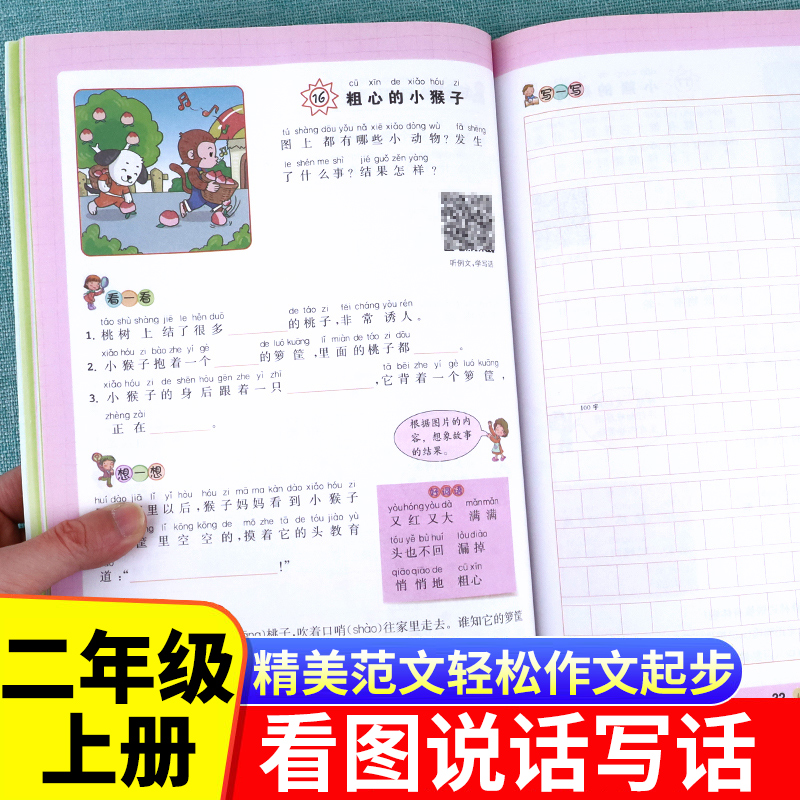 16
cū xīn de xiǎo hóu zi
粗心的小猴子
tú shàng dōu yǒu nǎ xiē xiǎo dòng wù fā shēng
图上都有哪些小动物?发生
le shén me shì jié guǒ zěn yàng
了什么事?结果怎样?
听例文,学写话
看一看
táo shù shàng jiē le hěn duō de táo zi fēi cháng yòu rén
1. 桃树上结了很多________的桃子,非常诱人。
xiǎo hóu zi bào zhe yí gè de luó kuāng lǐ miàn de táo zi dōu
2. 小猴子抱着一个________的箩筐,里面的桃子都________。
xiǎo hóu zi de shēn hòu gēn zhe yì zhī tā bēi zhe yí gè luó kuāng
3. 小猴子的身后跟着一只________,它背着一个箩筐,
zhèng zài
正在________。
根据图片的内
容,想象故事
的结果。
想一想
huí dào jiā lǐ yǐ hòu hóu zi mā ma kàn dào xiǎo hóu zi
里以后,猴子妈妈看到小猴子
lǐ kōng kōng de mō zhe tā de tóu jiào yù
筐里空空的,摸着它的头教育
道:“________!”
好词语
yòu hóng yòu dà mǎn mǎn
又红又大 满满
tóu yě bù huí lòu diào
头也不回 漏掉
qiāo qiāo de cū xīn
悄悄地 粗心
桃子,吹着口哨(shào)往家里走去。谁知它的箩筐
写一写
100字
二年级
上册
精美范文轻松作文起步
看图说话写话